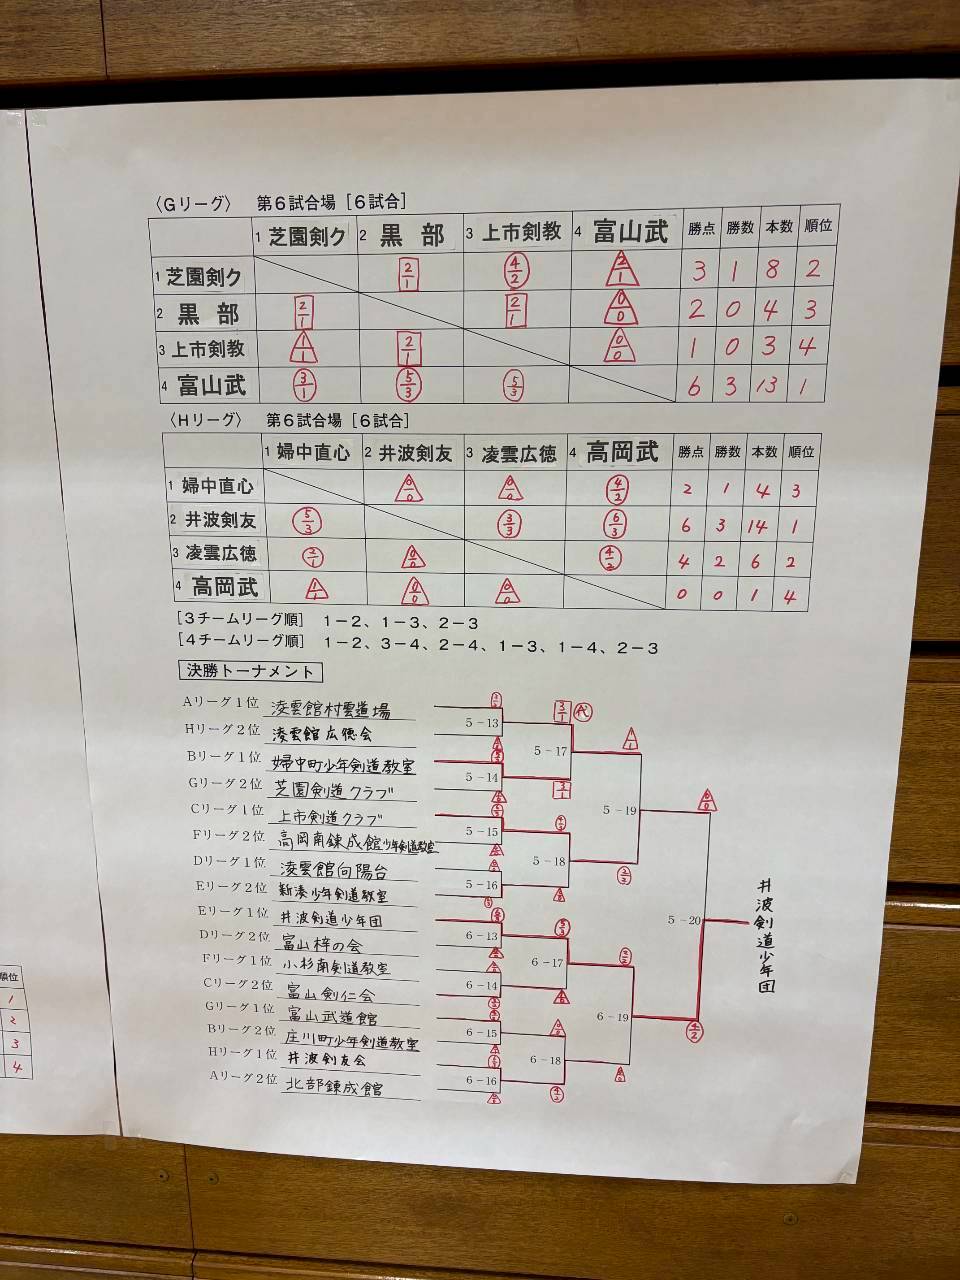 〈Gリーグ〉 第6試合場［6試合］
1 芝園剣ク 2 黒部 3 上市剣教 4 富山武 勝点 勝数 本数 順位
1 芝園剣ク 2/1 4/2 2/1 3 1 8 2
2 黒部 2/1 2/1 0/0 2 0 4 3
3 上市剣教 1/1 2/1 0/0 1 0 3 4
4 富山武 3/1 5/3 5/3 6 3 13 1
〈Hリーグ〉 第6試合場［6試合］
1 婦中直心 2 井波剣友 3 凌雲広徳 4 高岡武 勝点 勝数 本数 順位
1 婦中直心 0/0 0/0 4/2 2 1 4 3
2 井波剣友 5/3 3/3 6/3 6 3 14 1
3 凌雲広徳 2/1 0/0 4/2 4 2 6 2
4 高岡武 1/1 0/0 0/0 0 0 1 4
［3チームリーグ順］ 1－2、1－3、2－3
［4チームリーグ順］ 1－2、3－4、2－4、1－3、1－4、2－3
決勝トーナメント
Aリーグ1位 凌雲館村雲道場
5-13
3/1 代
Hリーグ2位 凌雲館広徳会
5-17
Bリーグ1位 婦中町少年剣道教室
5-14
3/1
Gリーグ2位 芝園剣道クラブ
5-19
0/0
Cリーグ1位 上市剣道クラブ
5-15
Fリーグ2位 高岡南錬成館少年剣道教室
5-18
Dリーグ1位 凌雲館向陽台
5-16
Eリーグ2位 新湊少年剣道教室
5-20
井波剣道少年団
Eリーグ1位 井波剣道少年団
6-13
5/3
Dリーグ2位 富山梓の会
6-17
Fリーグ1位 小杉南剣道教室
6-14
Cリーグ2位 富山剣仁会
6-19
4/2
Gリーグ1位 富山武道館
6-15
Bリーグ2位 庄川町少年剣道教室
6-18
Hリーグ1位 井波剣友会
6-16
Aリーグ2位 北部錬成館
順位
1
2
3
4